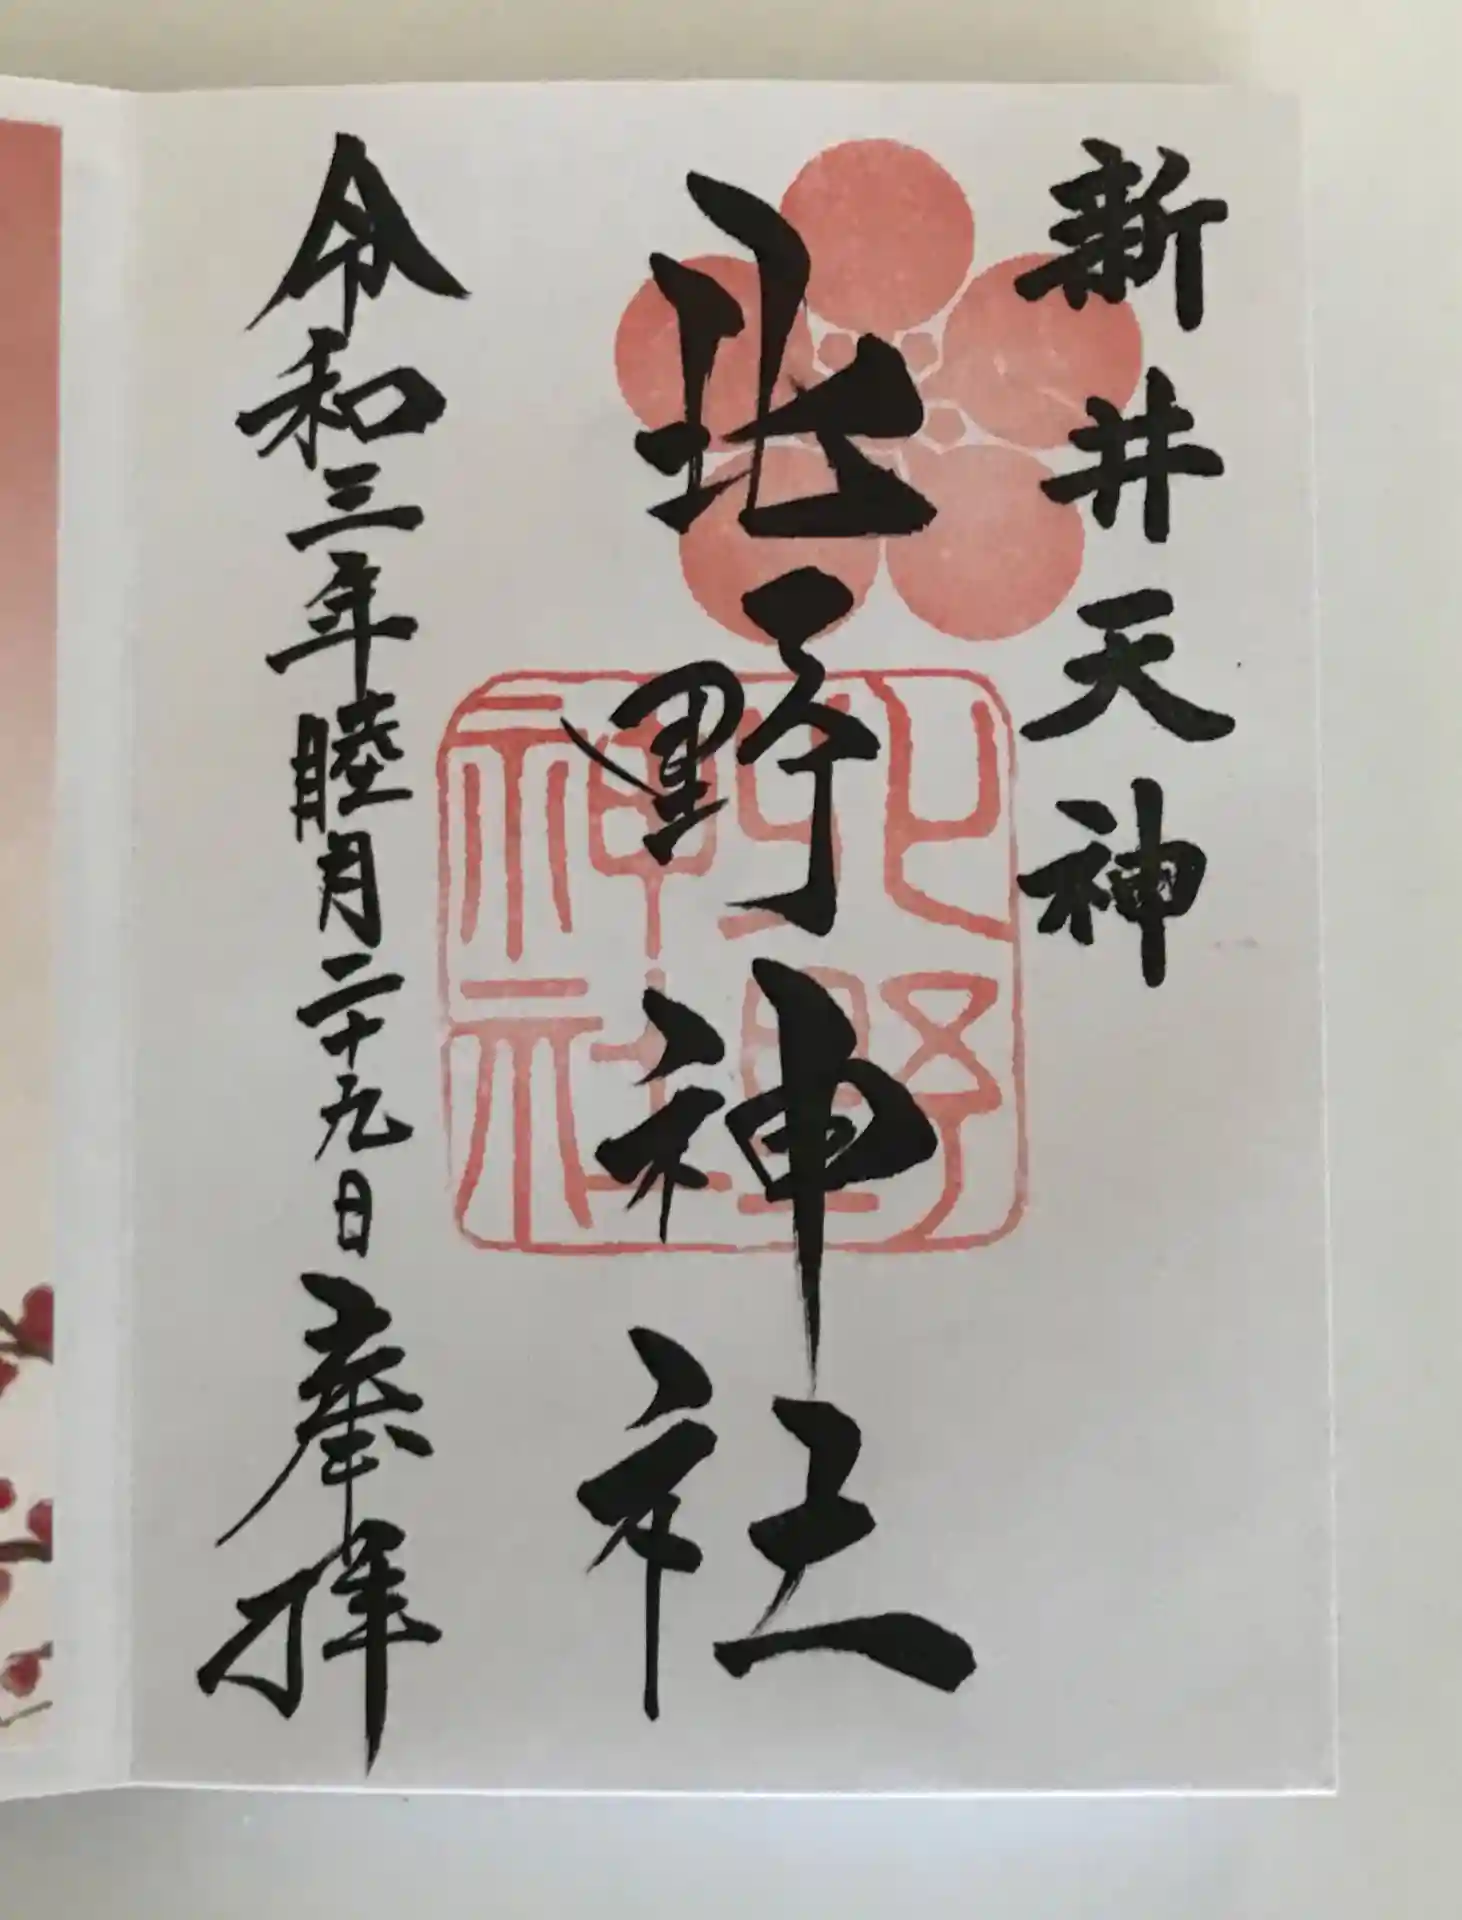 新井天神
北野神社
北野神社
令和三年睦月二十九日奉拝